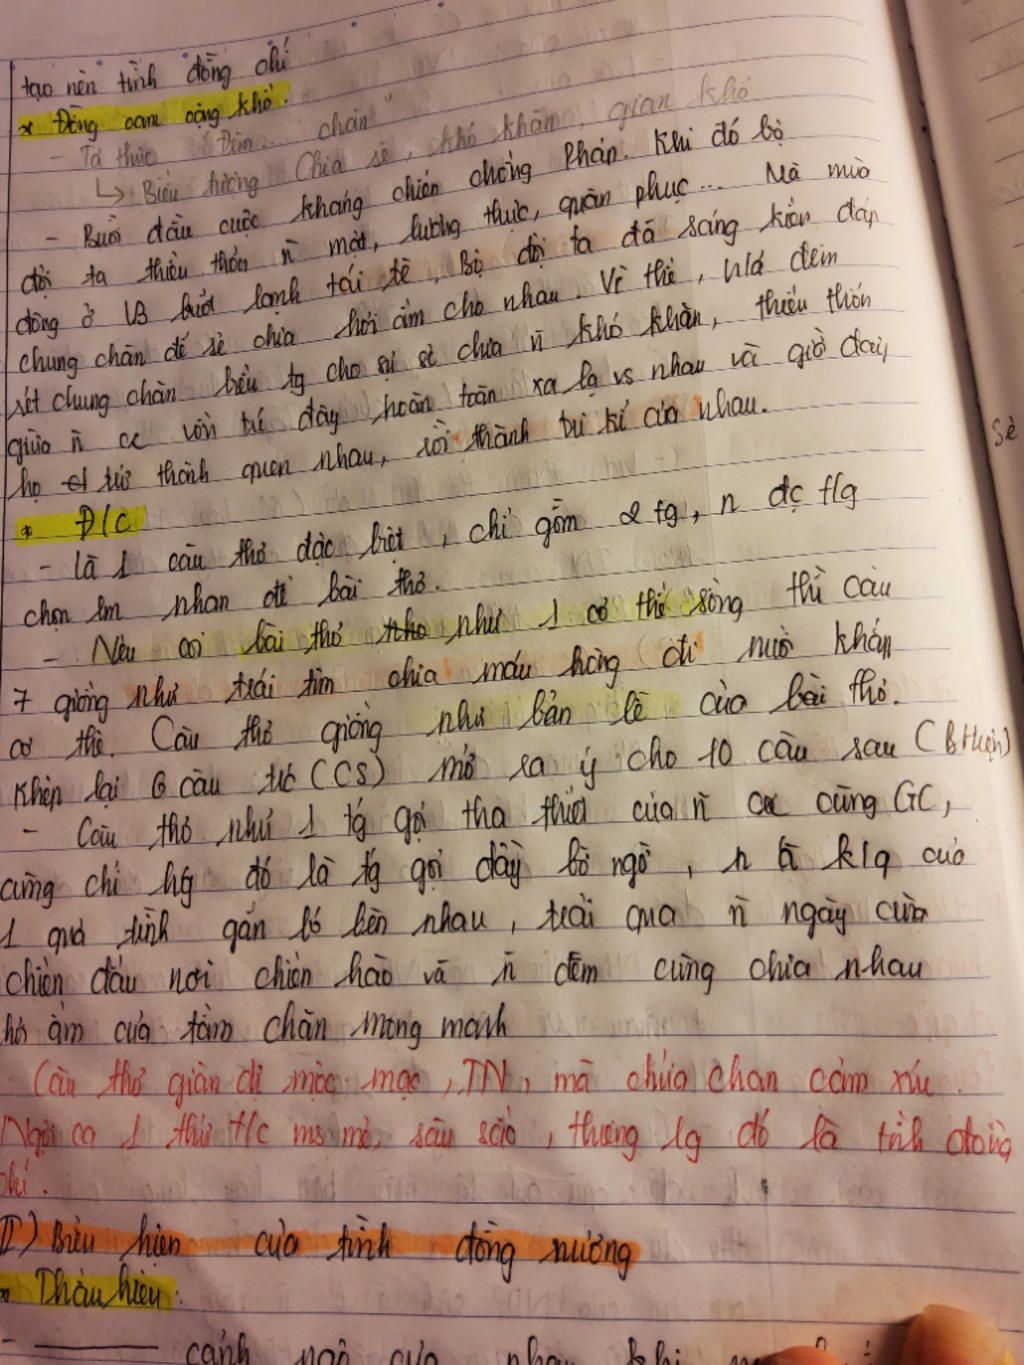 tạo nên tình đồng chí
* Đồng cam cộng khổ.
- Tả thực "Đêm... chăn"
↳ Biểu tượng Chia sẻ, khó khăn, gian khổ
- Buổi đầu cuộc kháng chiến chống Pháp. Khi đó bộ
đội ta thiếu thốn n̄ mặt, lương thực, quân phục... Mà mùa
đông ở VB buốt lạnh tái tê, Bộ đội ta đã sáng kiến đắp
chung chăn để sẻ chia hơi ấm cho nhau. Vì thế, h/á đêm
rét chung chăn biểu tg cho sự sẻ chia n̄ khó khăn, thiếu thốn
giữa n̄ vốn trc đây hoàn toàn xa lạ vs nhau và giờ đây
họ từ thành quen nhau, rồi thành tri kỉ của nhau.
* Đ/c
- là 1 câu thơ đặc biệt, chỉ gồm 2 tg, n đc t/g
chọn lm nhan đề bài thơ.
- Nếu coi bài thơ như 1 cơ thể sống thì câu
7 giống như trái tim chia máu hồng đi nuôi khắp
cơ thể. Câu thơ giống như bản lề của bài thơ.
Khép lại 6 câu trc (CS) mở ra ý cho 10 câu sau (BHiện)
- Câu thơ như 1 tg gọi tha thiết của n̄ cùng GC,
cùng chí hg đó là tg gọi đầy bỡ ngỡ, n là k/q của
1 quá trình gắn bó bên nhau, trải qua n̄ ngày cùng
chiến đấu nơi chiến hào và n̄ đêm cùng chia nhau
hơi ấm của tấm chăn mong manh
Câu thơ giản dị mộc mạc, TN, mà chứa chan cảm xúc.
Ngợi ca 1 thứ t/c ms mẻ, sâu sắc, thương lg đó là tình đồng
chí.
II) Biểu hiện của tình đồng hương
* Thấu hiểu:
- cảnh ngộ của nhau khi
Sẻ